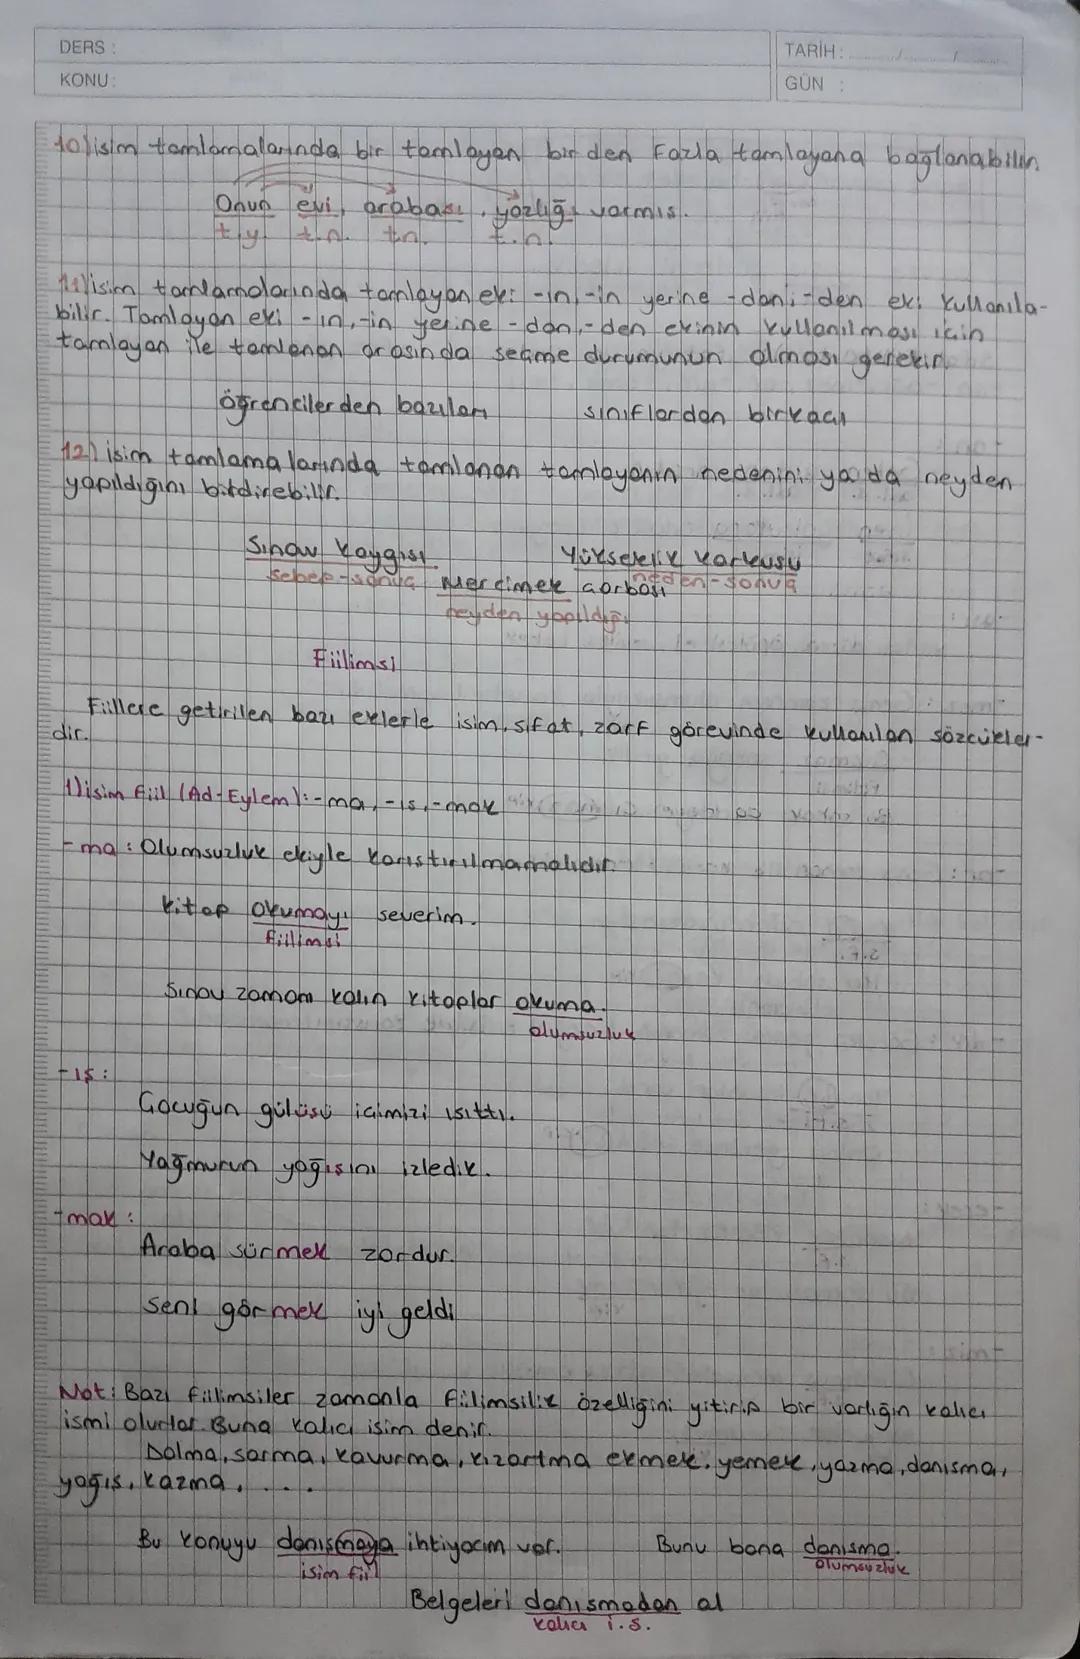 DERS :
TARİH: ....../....../......
KONU:
GÜN :
10) isim tamlamalarında bir tamlayan birden fazla tamlayana bağlanabilir.
Onun evi, arabası, yazlığı varmış.
t.y. t.n. t.n. t.n.
11) isim tamlamalarında tamlayan eki -ın, -in yerine -dan, -den eki kullanıla-
bilir. Tamlayan eki -ın, -in yerine -dan, -den ekinin kullanılması için
tamlayan ile tamlanan arasında seçme durumunun olması gerekir.
öğrencilerden bazıları sınıflardan birkaçı
12) isim tamlamalarında tamlanan tamlayanın nedenini ya da neyden
yapıldığını bildirebilir.
Sınav kaygısı Yükseklik korkusu
sebep-sonuç Mercimek çorbası neden-sonuç
neyden yapıldığı
Fiilimsi
Fiillere getirilen bazı eklerle isim, sıfat, zarf görevinde kullanılan sözcükler-
dir.
1) isim fiil (Ad-Eylem): -ma, -ış, -mak
-ma : Olumsuzluk ekiyle karıştırılmamalıdır.
kitap okumayı severim.
fiilimsi
Sınav zamanı kalın kitaplar okuma.
olumsuzluk
-ış :
Çocuğun gülüşü içimizi ısıttı.
Yağmurun yağışını izledik.
-mak :
Araba sürmek zordur.
seni görmek iyi geldi
Not: Bazı fiilimsiler zamanla fiilimsilik özelliğini yitirip bir varlığın kalıcı
ismi olurlar. Buna kalıcı isim denir.
Dolma, sarma, kavurma, kızartma ekmek, yemek, yazma, danışma,
yağış, kazma, . . . .
Bu konuyu danışmaya ihtiyacım var. Bunu bana danışma.
isim fiil olumsuzluk
Belgeleri danışmadan al
kalıcı i.s.